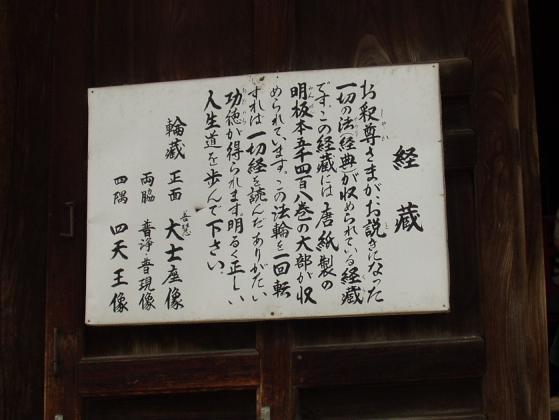 経蔵
お釈尊さまがお説きになった
一切の法(経典)が収められている経蔵
です。この経蔵には唐紙製の
明板本五千四百八巻の大部が収
められています。この法輪を一回転
すれば一切経を読んだありがたい
功徳が得られます。明るく正しい
人生道を歩んで下さい。
輪蔵 正面 大士座像
両脇 普浄・普現像
四隅 四天王像